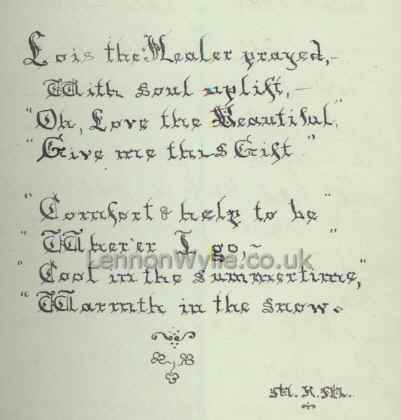 Lois the Healer prayed,-
With soul uplift,-
"Oh, Love the Beautiful,"
"Give me this Gift"
"Comfort & help to be"
"Wher'er I go,~"
LennonWylie.co.uk
"Cool in the summertime,"
"Warmth in the snow.